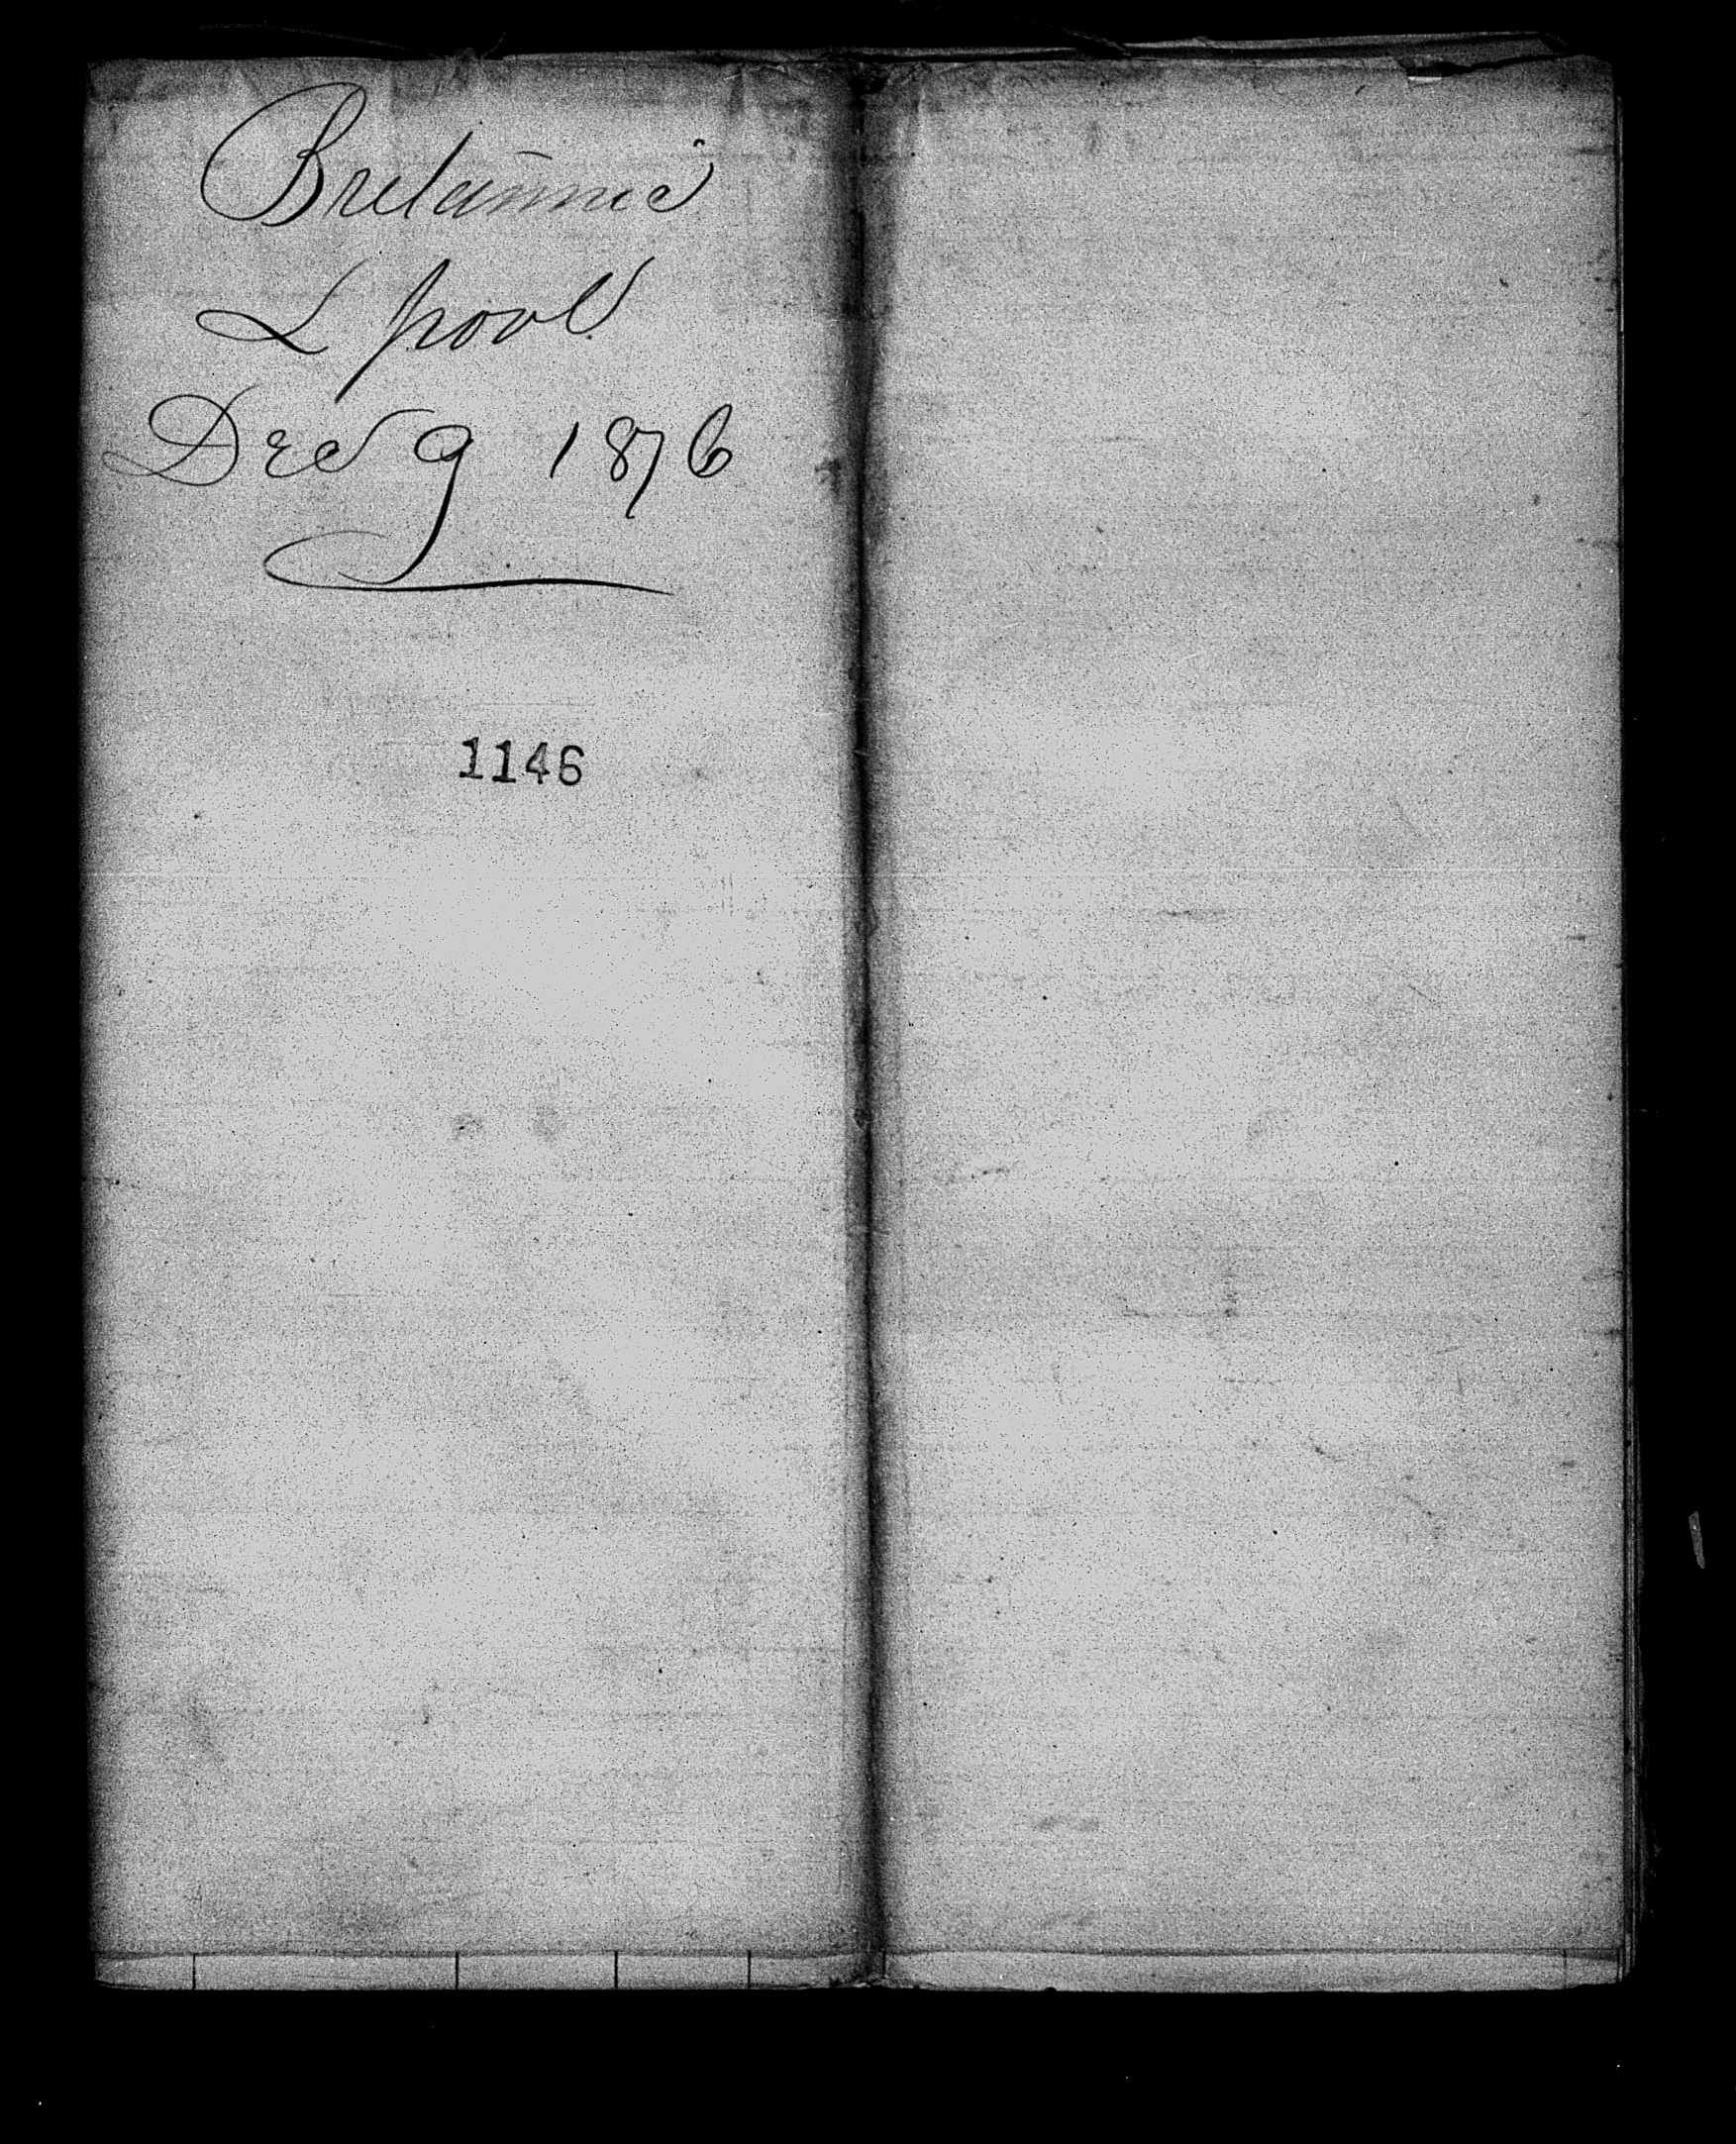 Britannic
L pool
Dec 9 1876
1146